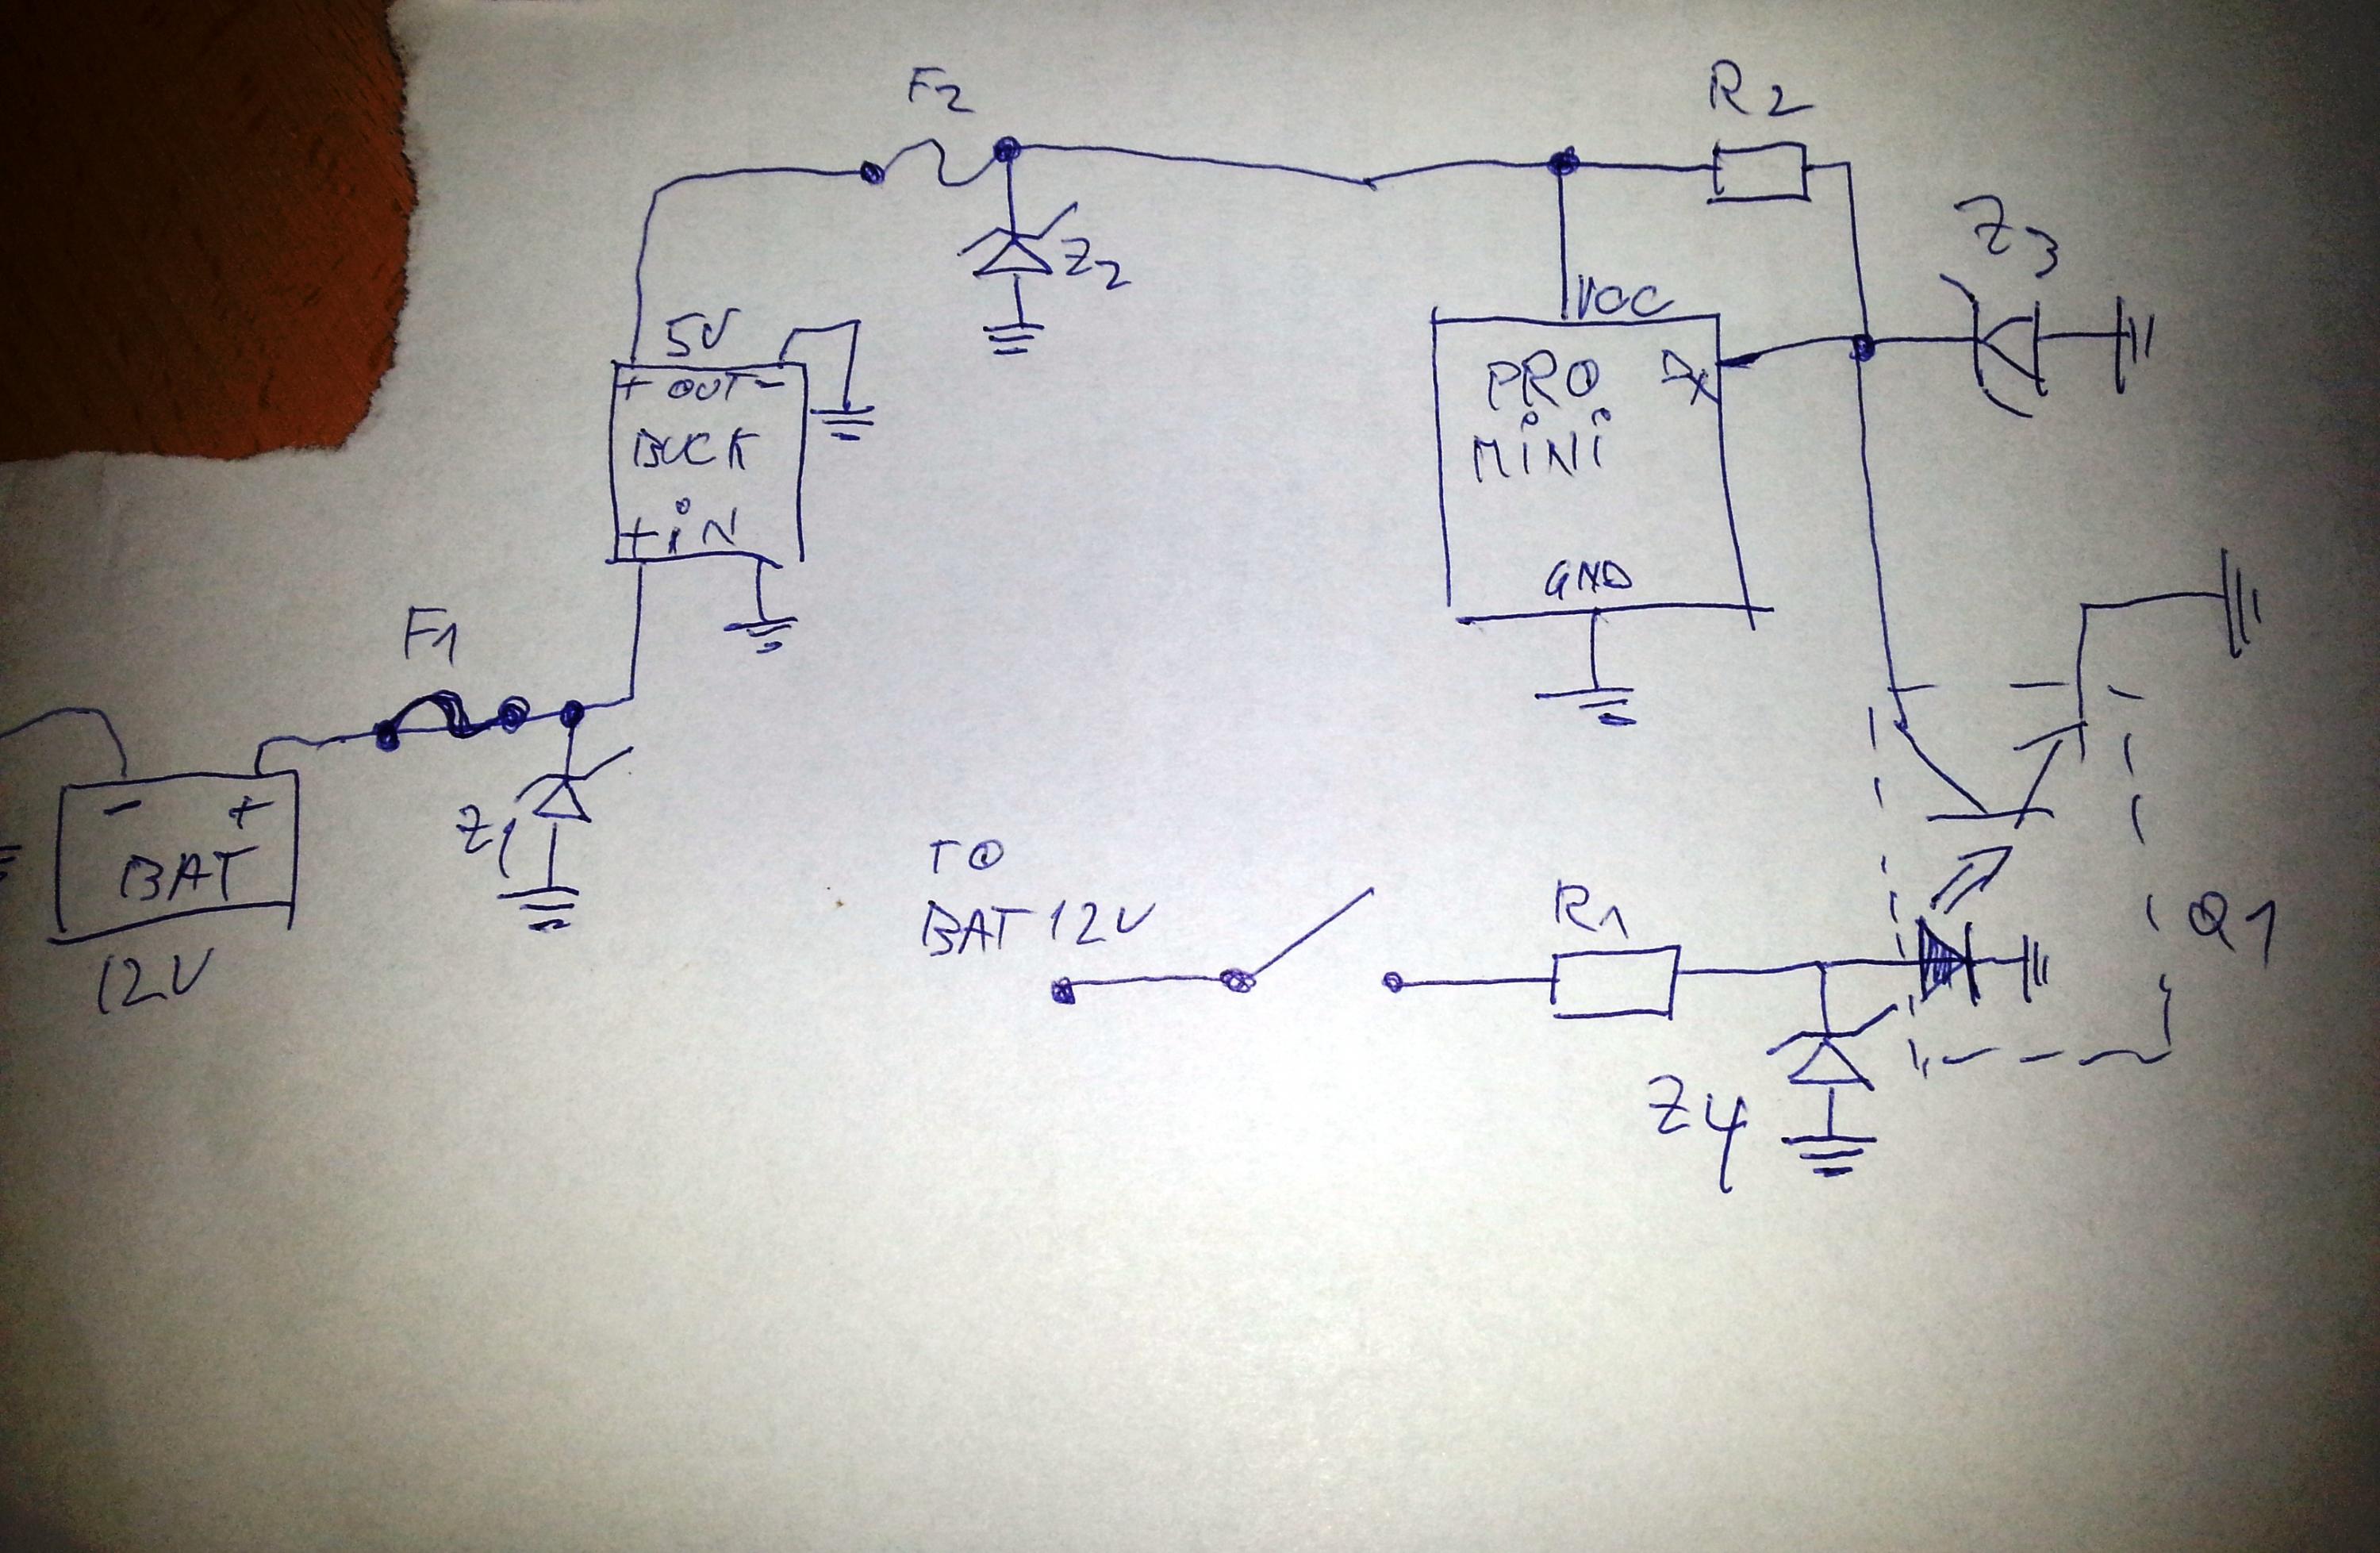 F2
R2
Z3
Z2
5V
VCC
+ OUT -
BUCK
+ iN
PRO
MiNi
GND
F1
Z1
- +
BAT
12V
TO
BAT 12V
R1
Q1
Z4